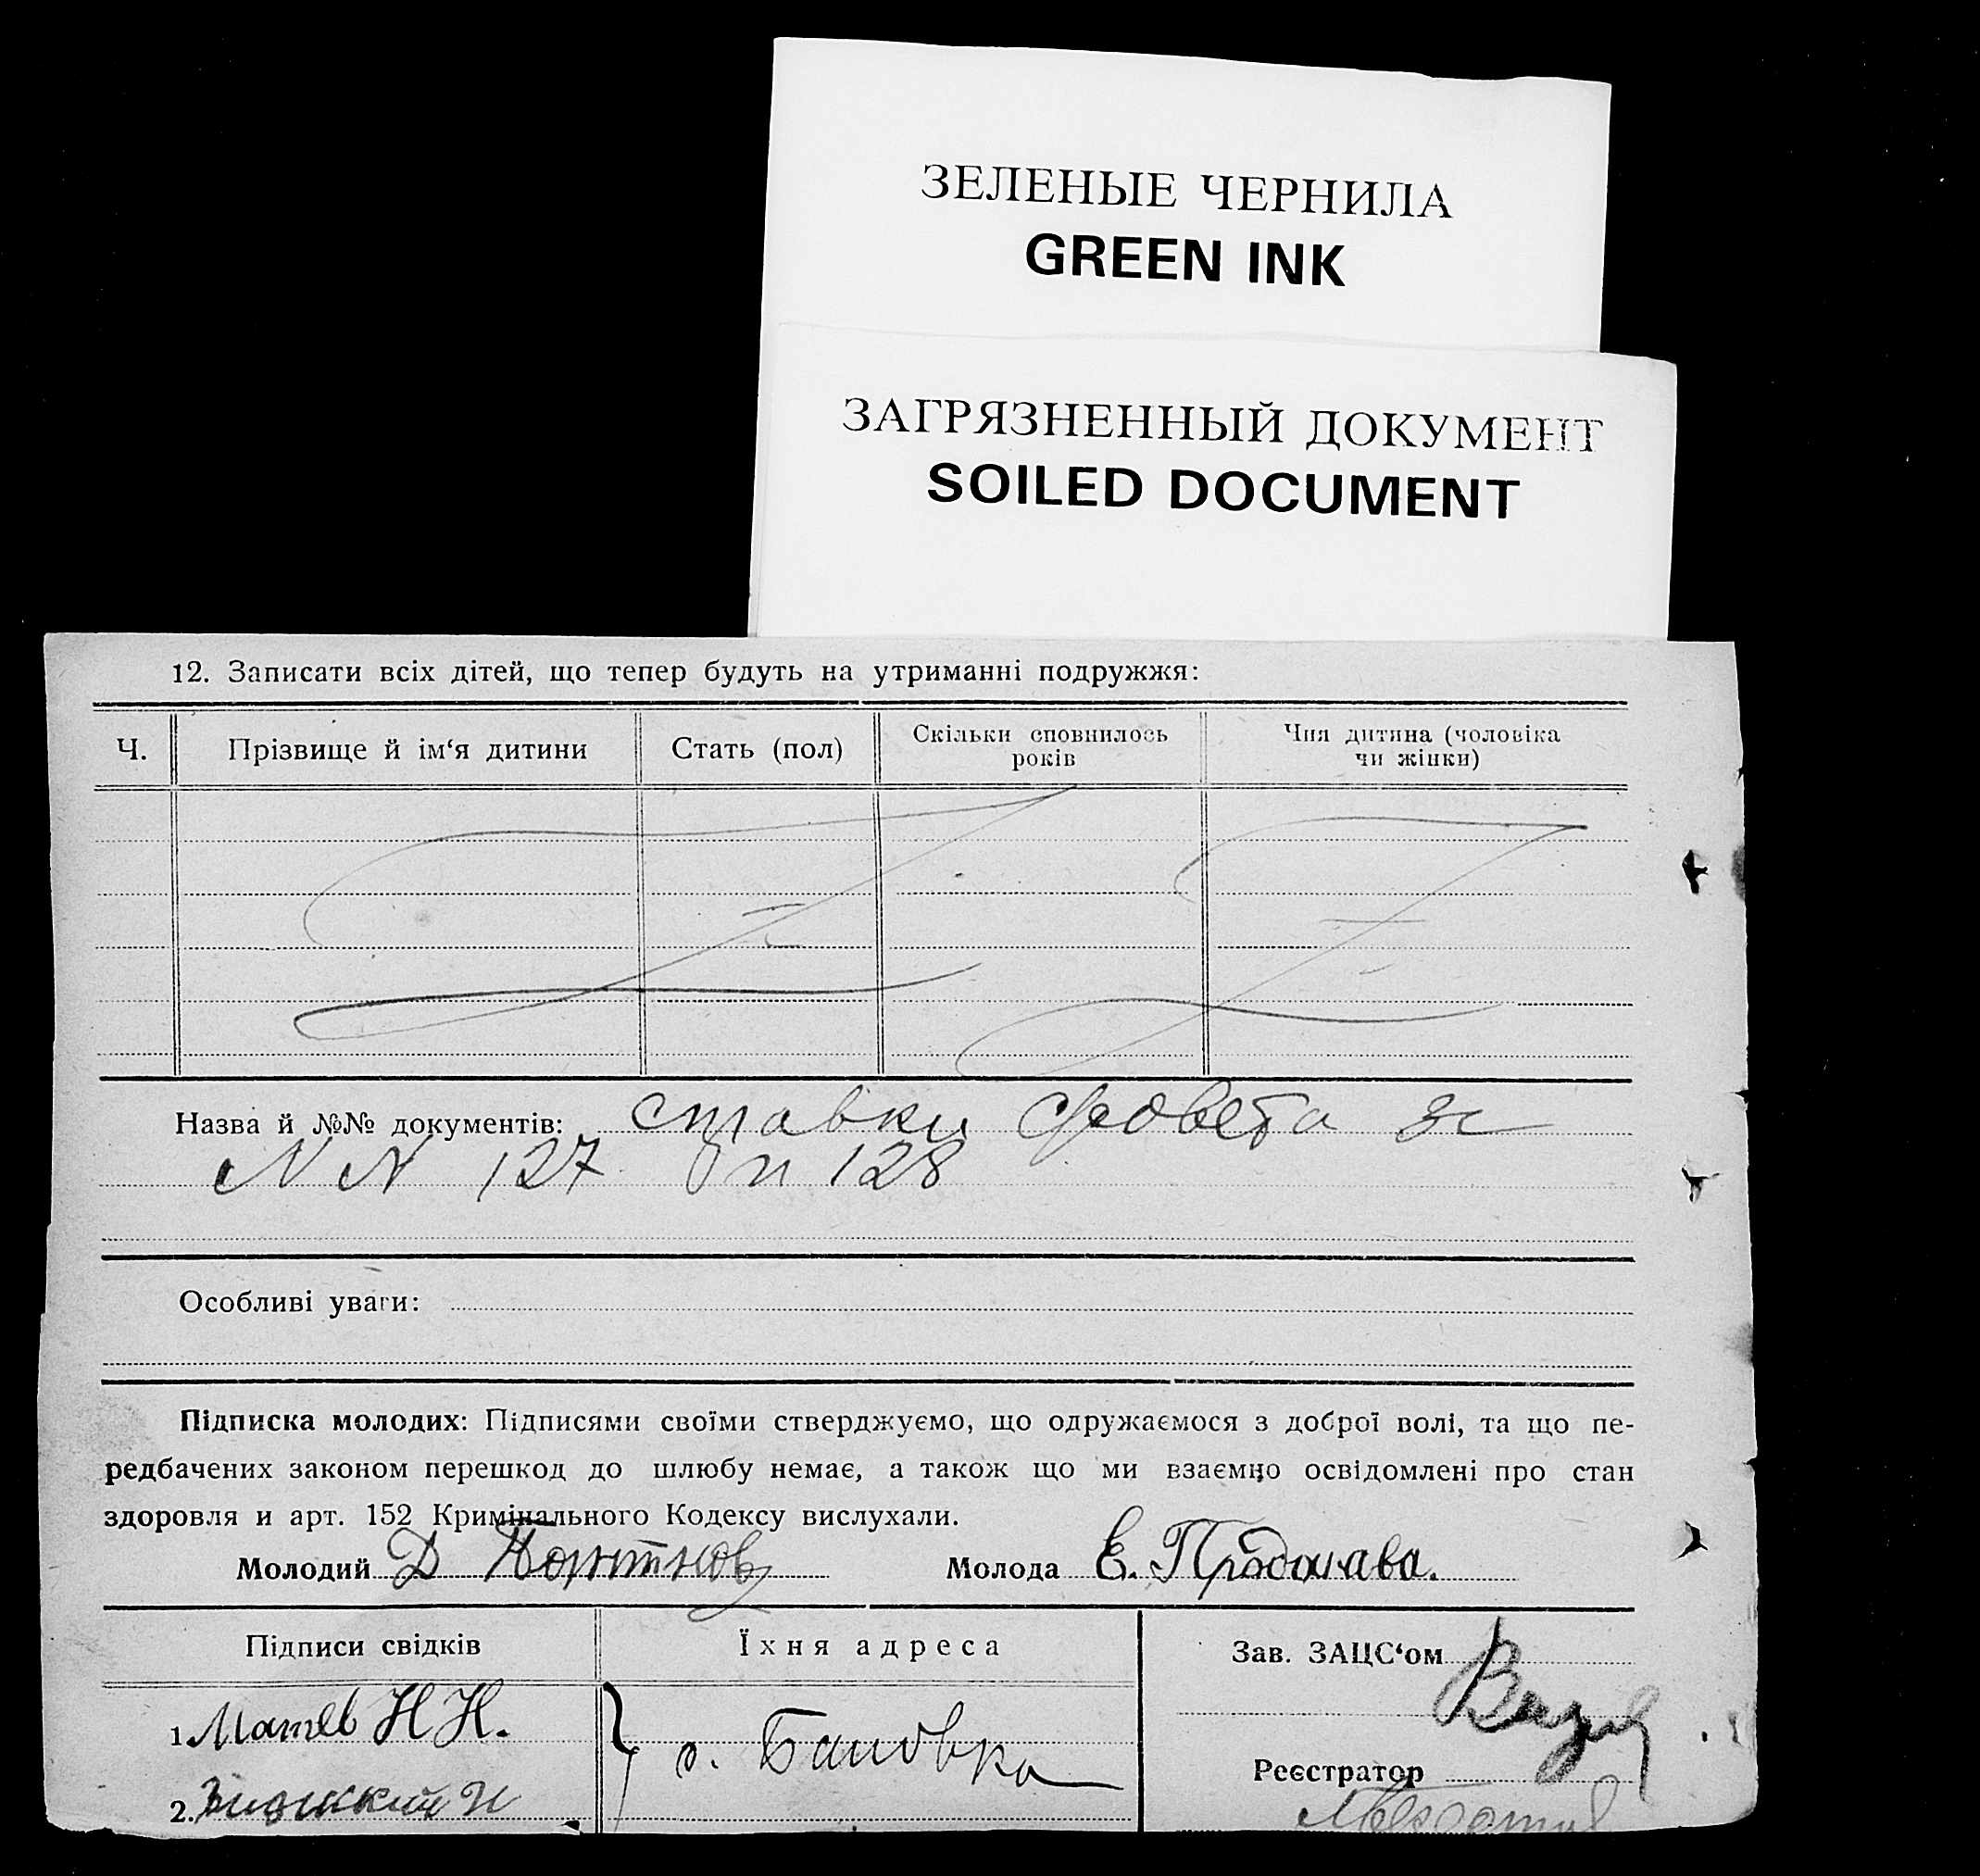 ЗЕЛЕНЫЕ ЧЕРНИЛА
GREEN INK
ЗАГРЯЗНЕННЫЙ ДОКУМЕНТ
SOILED DOCUMENT
12. Записати всіх дітей, що тепер будуть на утриманні подружжя:
Ч.
Прізвище й ім‘я дитини
Стать (пол)
Скільки сповнилось
років
Чия дитина (чоловіка
чи жінки)
Назва й №№ документів: ставки за
N N 127 128
Особливі уваги:
Підписка молодих: Підписями своїми стверджуємо, що одружаємося з доброї волі, та що пе-
редбачених законом перешкод до шлюбу немає, а також що ми взаємно освідомлені про стан
здоровля и арт. 152 Кримінального Кодексу вислухали.
Молодий Д
Молода Е.
Підписи свідків
Їхня адреса
Зав. ЗАЦС‘ом
1. Н Н.
с. Бановка
Реєстратор
2.